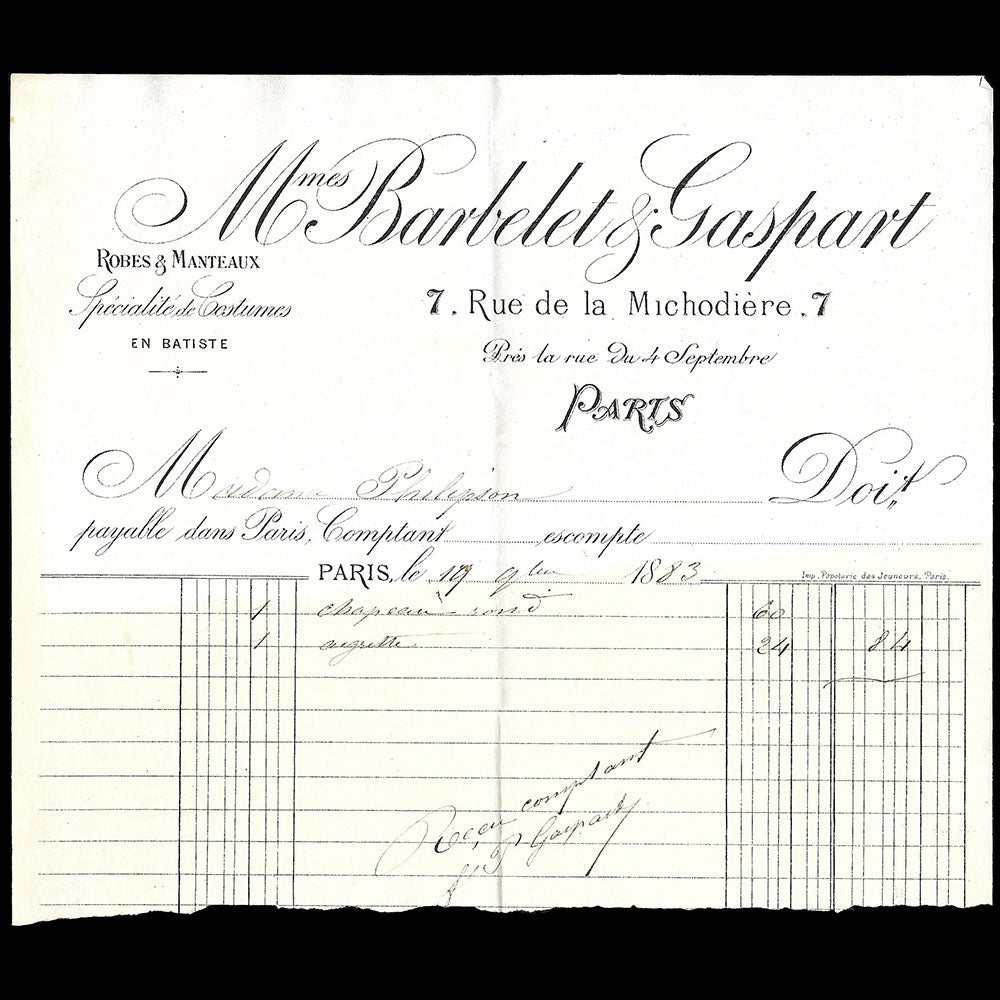 Mmes Barbelet & Gaspart
ROBES & MANTEAUX
Spécialité de Costumes
EN BATISTE
7. Rue de la Michodière. 7
Près la rue du 4 Septembre
PARIS
Madame Philipson Doit
payable dans Paris, Comptant escompte
PARIS, le 9bre 1883
Imp. Papeterie des Jeuneurs, Paris.
1 chapeau rond 60
1 aigrette 24 84
Reçu comptant
Gaspart